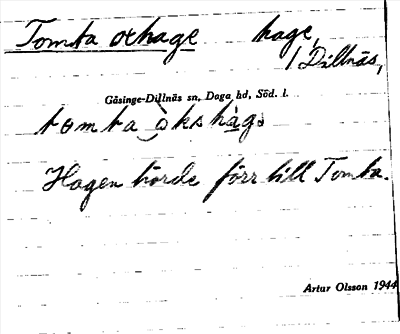 Tomta oxhage hage,
/ Dillnäs,
Gåsinge-Dillnäs sn, Daga hd, Söd. l.
tomta òks hàgə
Hagen hörde förr till Tomta.
Artur Olsson 1944